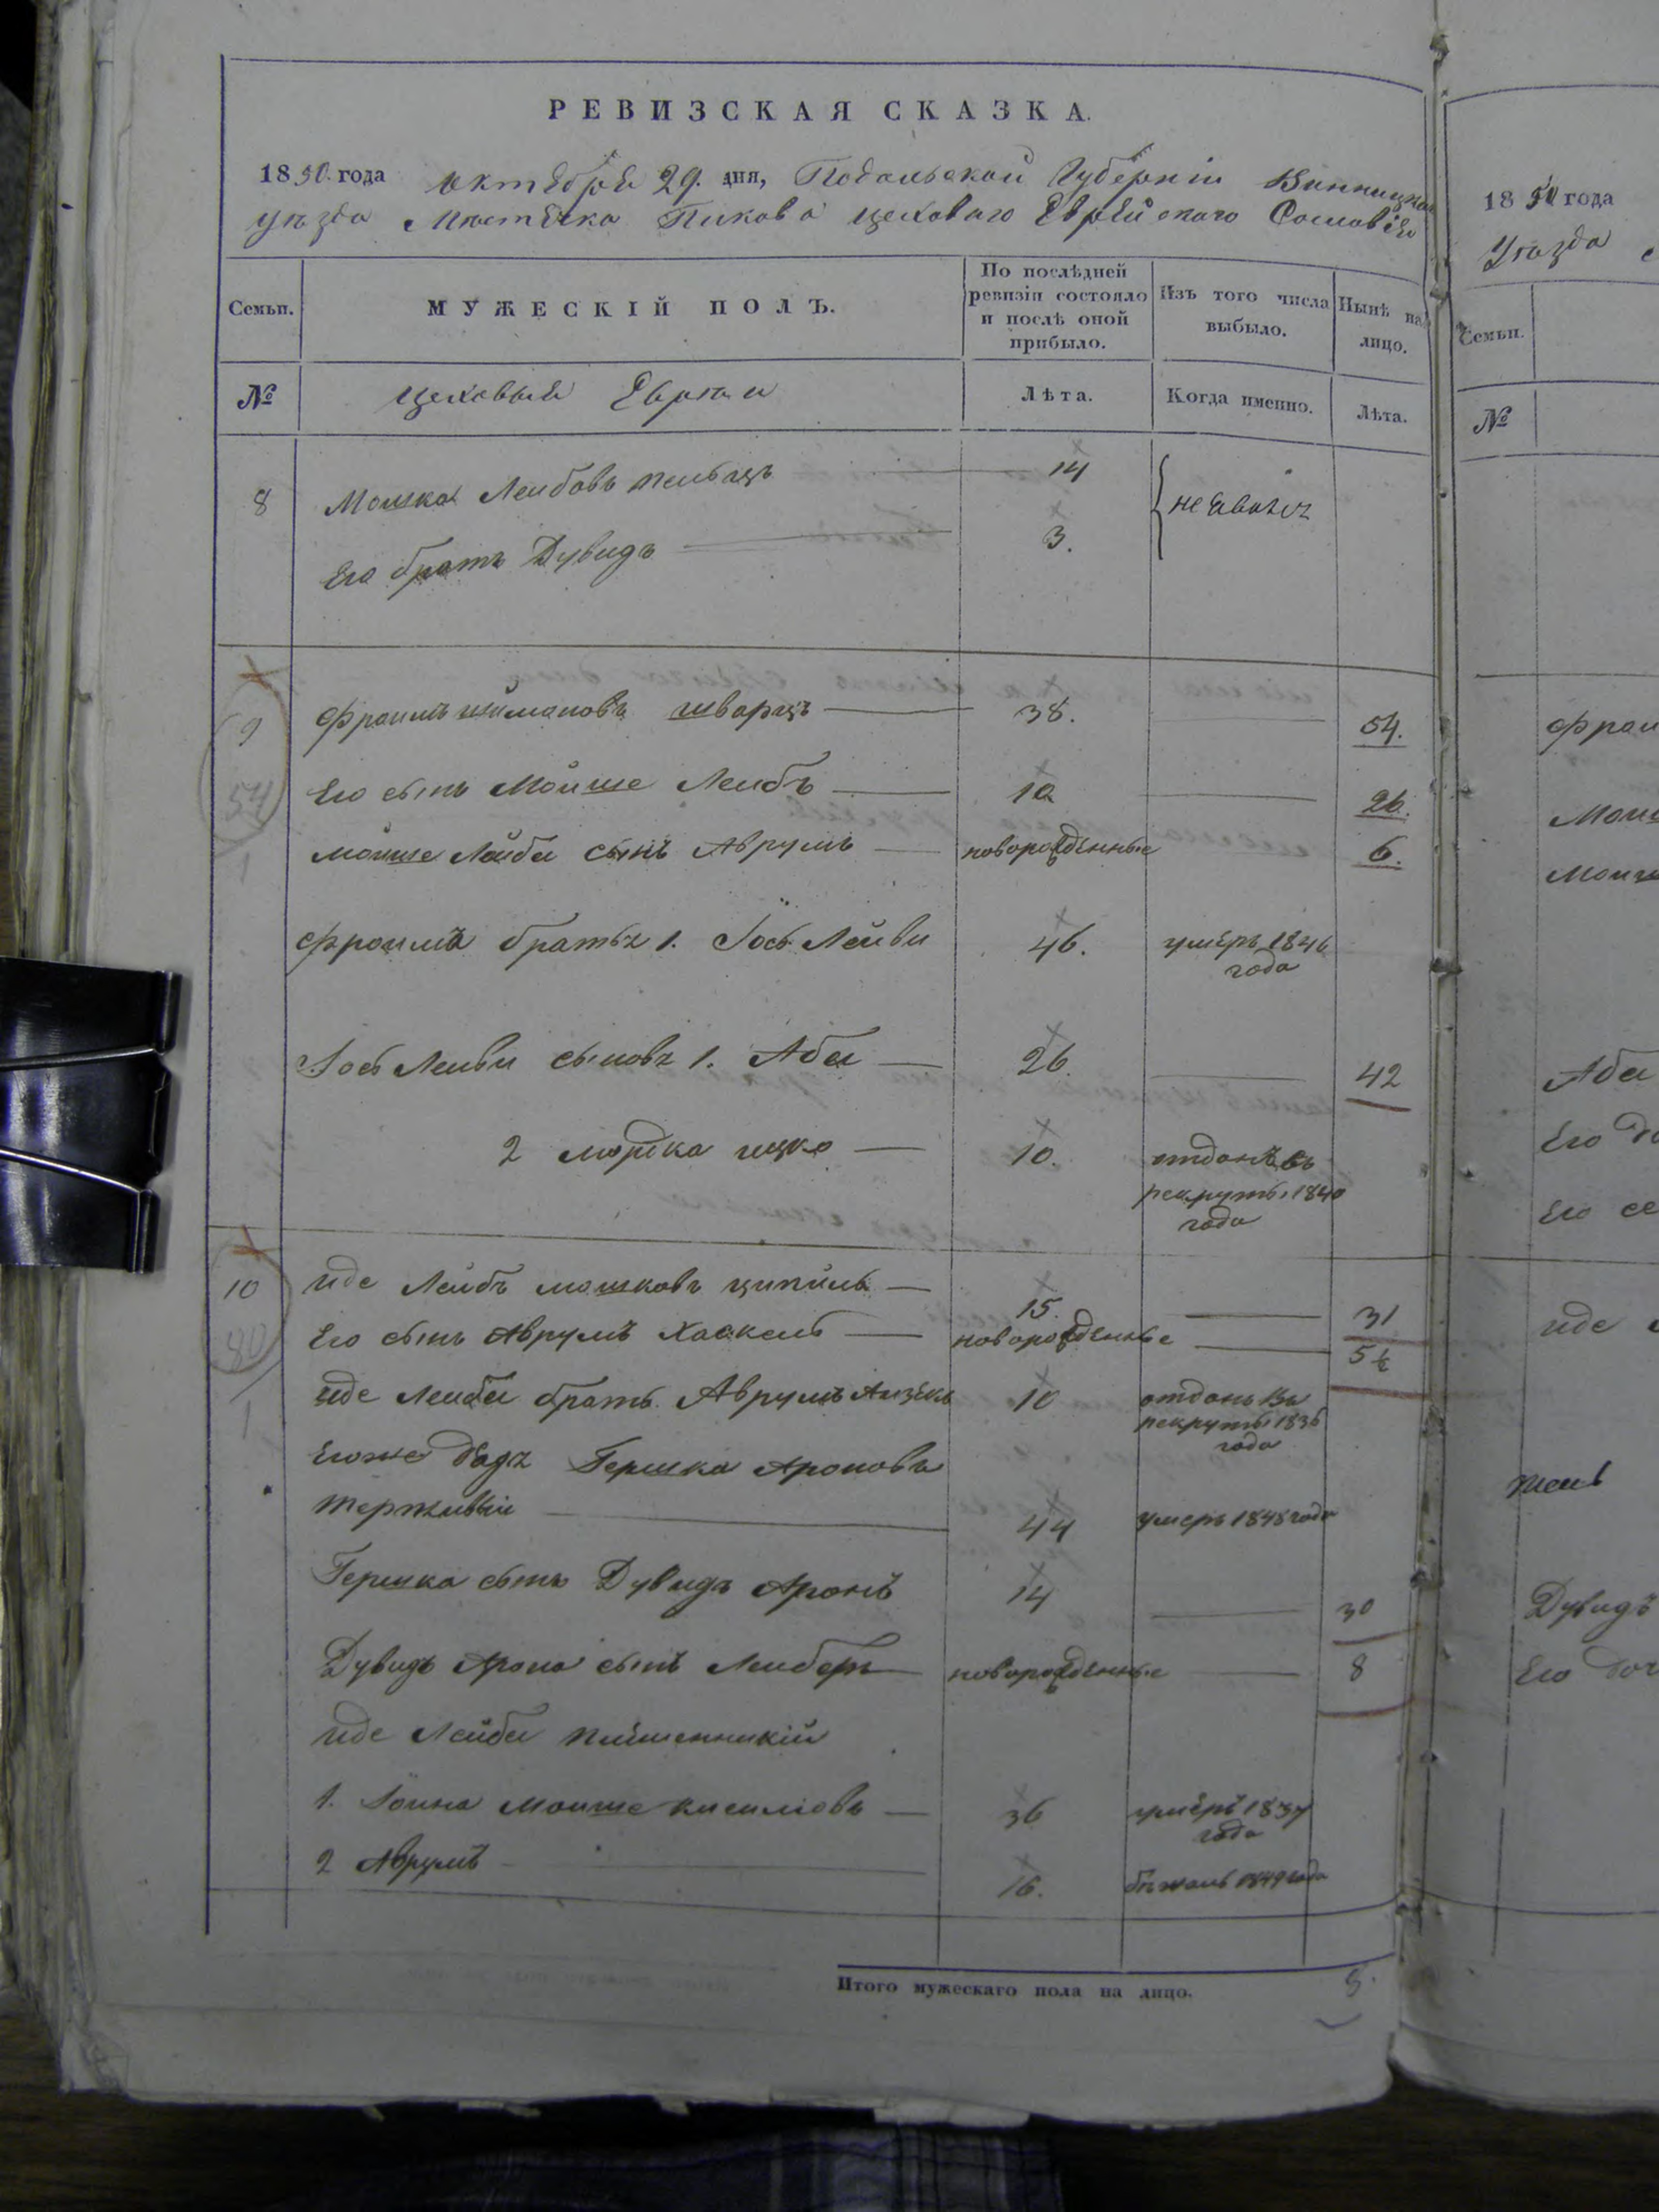 РЕВИЗСКАЯ СКАЗКА.
1850 года октября 29. дня, Подольской Губерніи Винницкаго
уѣзда Мѣстечка Пикова цеховаго Еврейскаго Сословія
Семьи.
МУЖЕСКІЙ ПОЛЪ.
По послѣдней ревизіи состояло и послѣ оной прибыло.
Изъ того числа выбыло.
Нынѣ на лицо.
№
цеховые Евреи
Лѣта.
Когда именно.
Лѣта.
8 Мошка Лейбовъ 14
Его братъ Дувидъ 3.
9 Фроимъ Шимановъ Шварцъ 38. 54.
54 Его сынъ Мойше Лейбъ 10 26.
Мойше Лейбы сынъ Аврумъ новорожденные 6.
1
Фроима братья 1. Іось Лейви 46. умеръ 1846
года
Іось Лейви сыновья 1. Аба 26. 42
2 Мордка Ицко 10. отданъ въ
рекруты 1840
года
10 Иде Лейбъ Мошковъ 15. 31
Его сынъ Аврумъ Хаскель новорожденые 5½
Иде Лейбы братъ Аврумъ 10 отданъ въ
рекруты 1836
года
1
Егоже дядя Гершка Ароновъ
44 умеръ 1848 года
Гершка сынъ Дувидъ Аронъ 14 30
Дувидъ Арона сынъ Лейберъ новорожденные 8
Иде Лейбы
1. Мойше 36 умеръ 1837
года
2 Аврумъ 16. бѣжалъ 1849 года
Итого мужескаго пола на лицо. 8.
1850 года
Уѣзда
Семьи.
№
Фрои
Мойш
Мойш
Аба
Его до
Его се
Иде
Дувидъ
Его доч